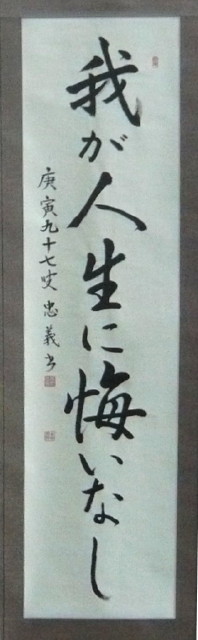 我が人生に悔いなし
庚寅九十七叟 忠義書